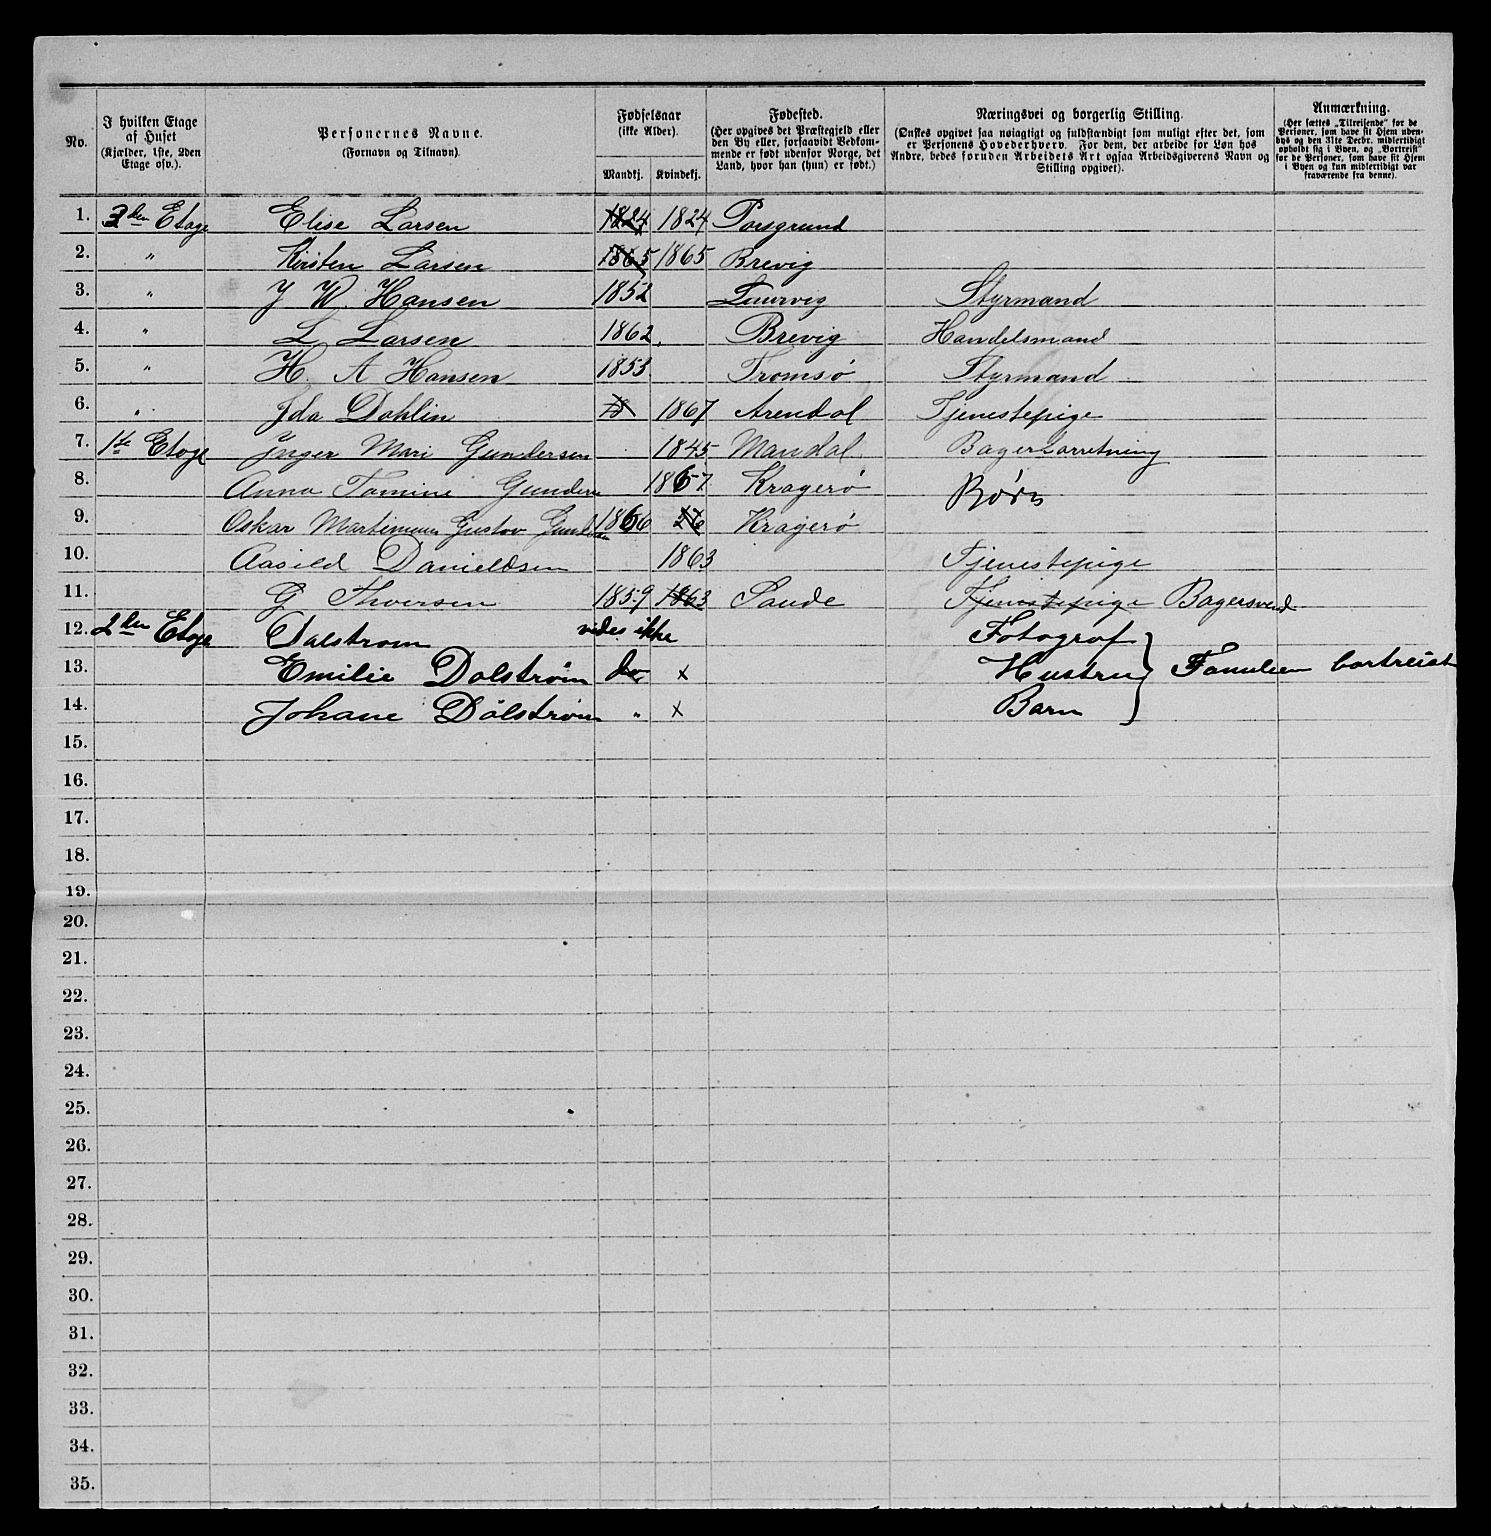 No.
I hvilken Etage af Huset (Kjælder, 1ste, 2den Etage osv.).
Personernes Navne. (Fornavn og Tilnavn).
Fødselsaar (ikke Alder).
Mandkj. Kvindekj.
Fødested. (Her opgives det Præstegjeld eller den By eller, forsaavidt Vedkommende er født udenfor Norge, det Land, hvor han (hun) er født.)
Næringsvei og borgerlig Stilling. (Ønskes opgivet saa nøiagtigt og fuldstændigt som muligt efter det, som er Personens Hovederhverv. For dem, der arbeide for Løn hos Andre, bedes foruden Arbeidets Art ogsaa Arbeidsgiverens Navn og Stilling opgivet).
Anmærkning. (Her sættes „Tilreisende“ for de Personer, som have sit Hjem udenbys og den 31te Decbr. midlertidigt opholdt sig i Byen, og „Bortreist“ for de Personer, som have sit Hjem i Byen og kun midlertidigt var fraværende fra denne).
1. 3den Etage Elise Larsen 1824 1824 Porsgrund
2. " Kirsten Larsen 1865 1865 Brevig
3. " J W Hansen 1852 Laurvig Styrmand
4. " L Larsen 1862 Brevig Handelsmand
5. " H. A Hansen 1853 Tromsø Styrmand
6. " Ida Dahlin 18 1867 Arendal Tjenestepige
7. 1te Etage Inger Mari Gundersen 1845 Mandal Bagerforretning
8. Anna Tomine Gunders 1867 Kragerø Børn
9. Oskar Martinius Gustav 1866 Kragerø
10. Aasild Danieldsen 1863 Tjenestepige
11. G Thversen 1859 1863 Sande Tjenestepige Bagersvend
12. 2den Etage Dalstrom vides ikke Fotograf
13. Emilie Dalstrøm do x Hustru } Familien bortreist
14. Johane Dalstrøm " x Barn
15.
16.
17.
18.
19.
20.
21.
22.
23.
24.
25.
26.
27.
28.
29.
30.
31.
32.
33.
34.
35.